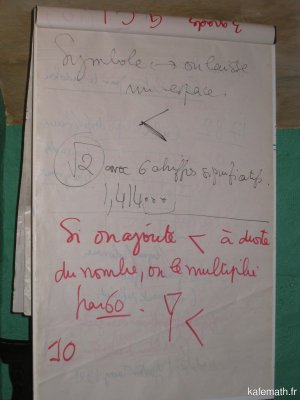 Symbole → on laisse
un espace.
<
√2 avec 6 chiffres significatifs.
1,414...
Si on ajoute < à droite
du nombre, on le multiplie
par 60.
<
10
kafemath.fr